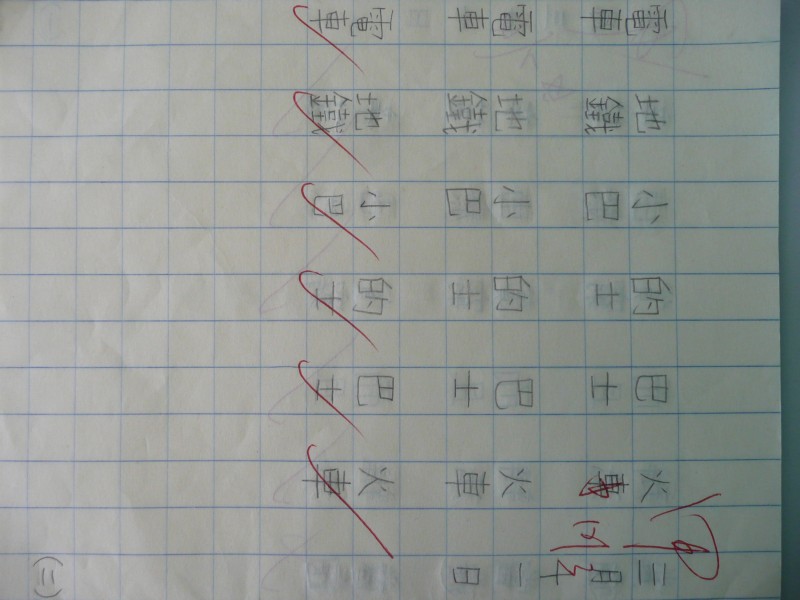 三月十二日
火車 火車 火車
巴士 巴士 巴士
的士 的士 的士
小巴 小巴 小巴
地鐵 地鐵 地鐵
電車 電車 電車
(二)